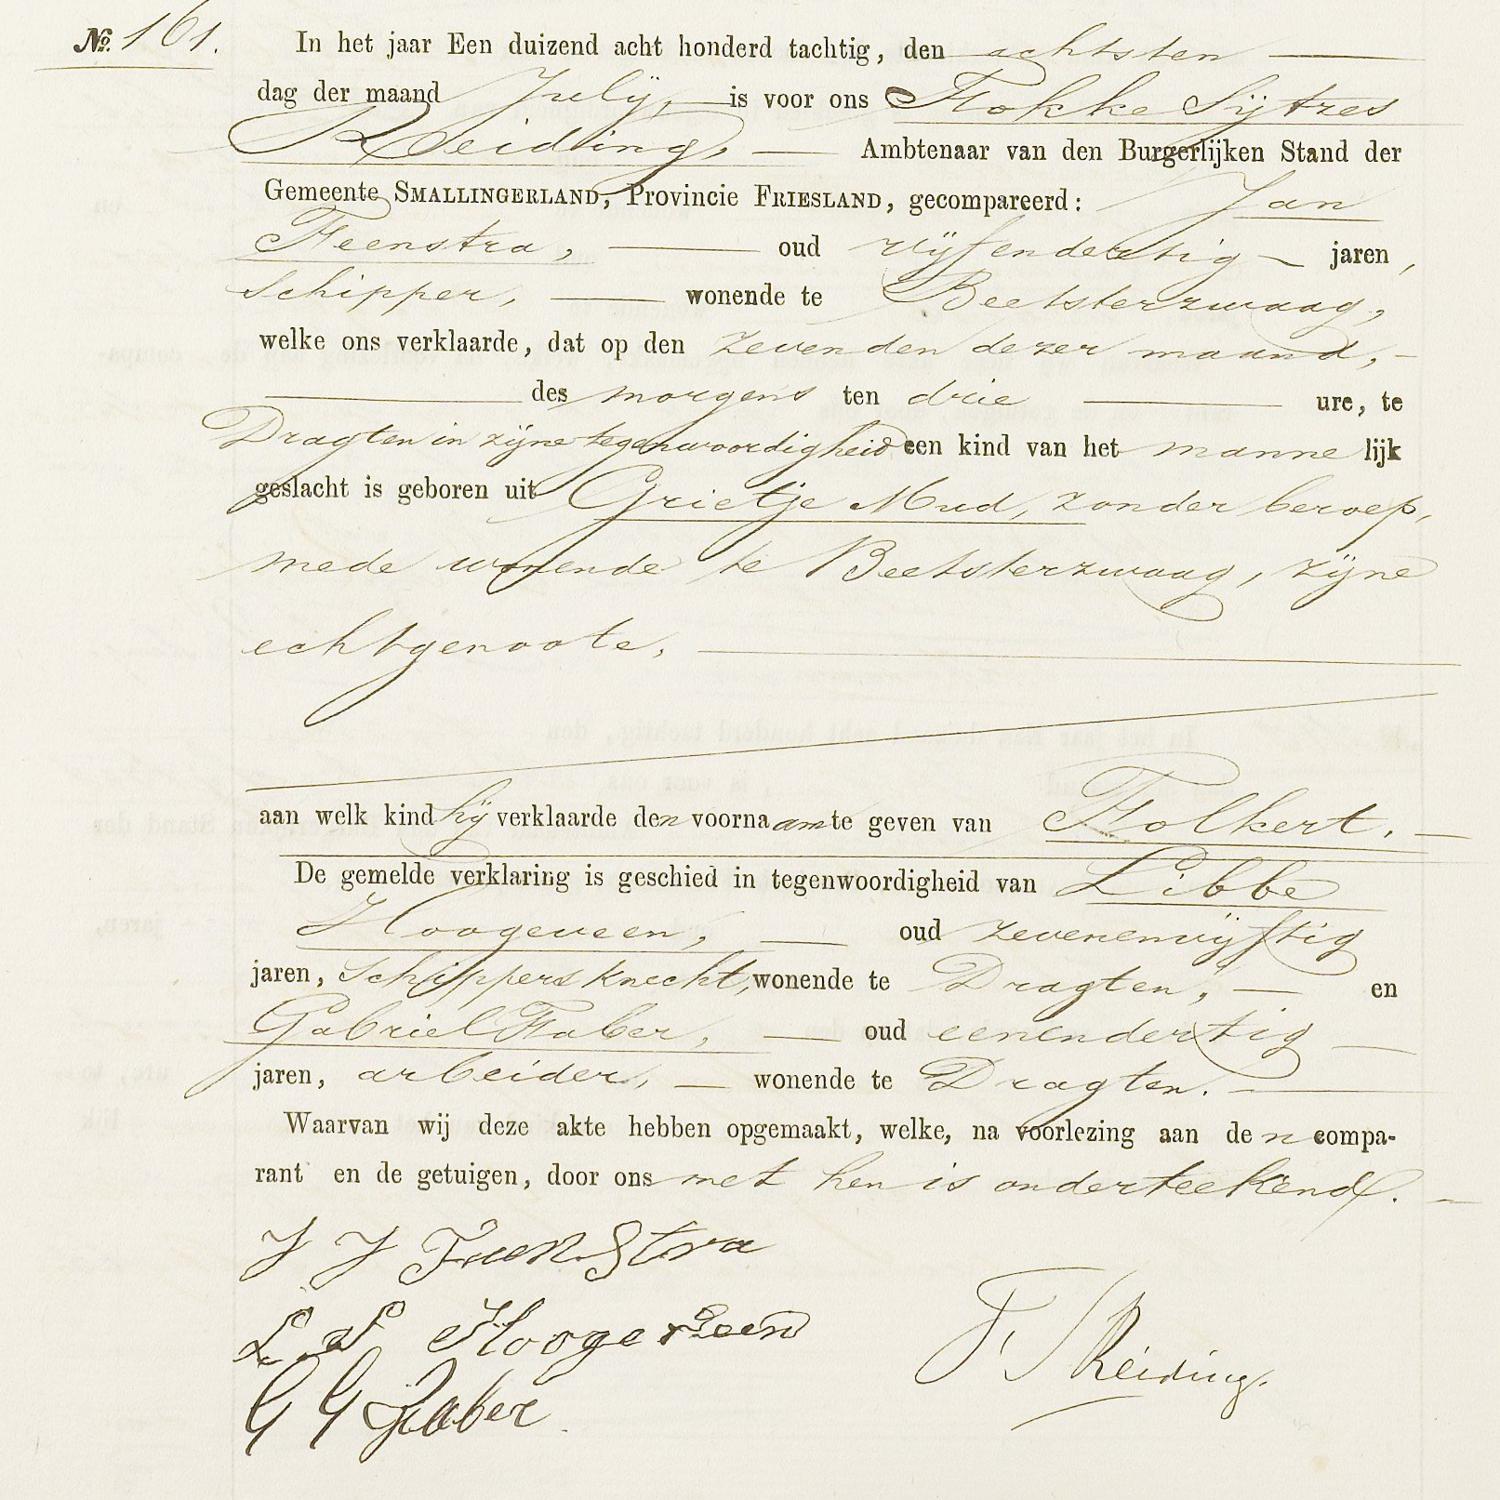 № 161. In het jaar Een duizend acht honderd tachtig, den achtsten
dag der maand July, is voor ons Fokke Sijtzes
Reiding, Ambtenaar van den Burgerlijken Stand der
Gemeente SMALLINGERLAND, Provincie FRIESLAND, gecompareerd: Jan
Feenstra, oud vijfendertig jaren,
schipper, wonende te Beetsterzwaag,
welke ons verklaarde, dat op den zevenden dezer maand,
des morgens ten drie ure, te
Dragten in zijne tegenwoordigheid een kind van het mannelijk
geslacht is geboren uit Grietje Mud, zonder beroep,
mede wonende te Beetsterzwaag, zijne
echtgenoote,
aan welk kind hij verklaarde den voornaam te geven van Folkert.
De gemelde verklaring is geschied in tegenwoordigheid van Libbe
Hoogeveen, oud zevenenvijftig
jaren, schippersknecht, wonende te Dragten, en
Gabriel Faber, oud eenendertig
jaren, arbeider, wonende te Dragten.
Waarvan wij deze akte hebben opgemaakt, welke, na voorlezing aan den compa-
rant en de getuigen, door ons met hen is onderteekend.
J J Feenstra
L. S Hoogeveen
G G Faber
F. S Reiding.